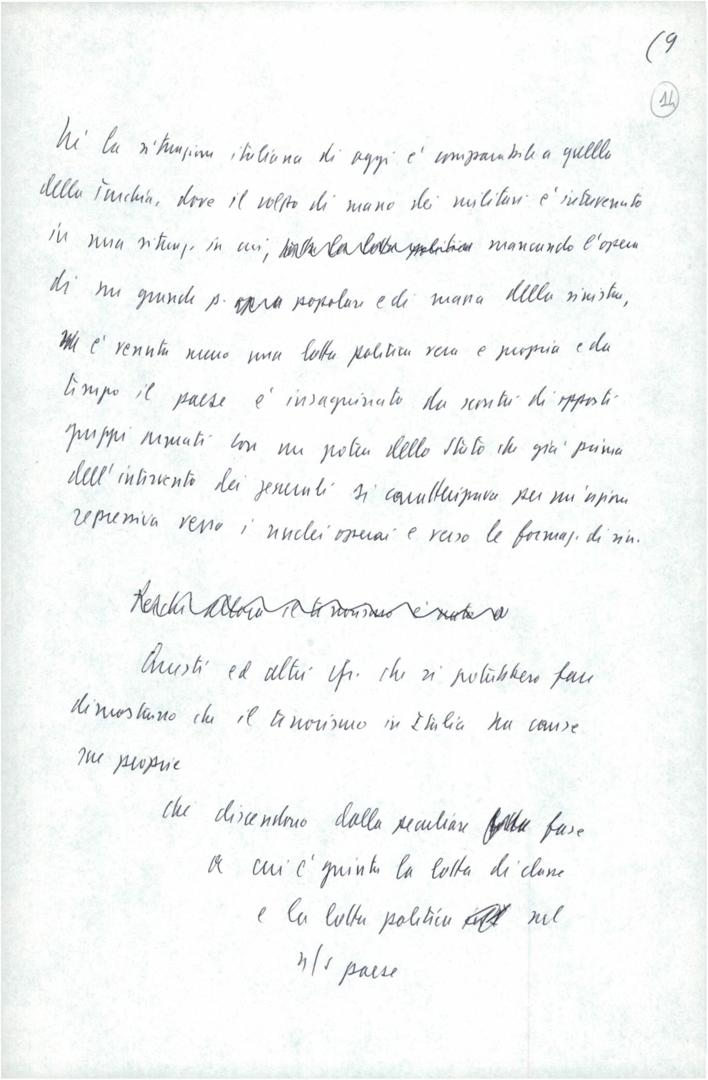 (9
14
Né la situazione italiana di oggi è comparabile a quella
della Turchia, dove il colpo di mano dei militari è intervenuto
in una situaz. in cui, mancando l'opera
di un grande p. popolare e di massa della sinistra,
è venuta meno una lotta politica vera e propria e da
tempo il paese è insanguinato da scontri di opposti
gruppi armati con un potere dello Stato che già prima
dell'intervento dei generali si caratterizzava per un'azione
repressiva verso i nuclei operai e verso le formaz. di sin.
Perché allora il terrorismo è nato e
Questi ed altri cfr. che si potrebbero fare
dimostrano che il terrorismo in Italia ha cause
sue proprie
che discendono dalla peculiare fase
a cui è giunta la lotta di classe
e la lotta politica nel
n/s paese